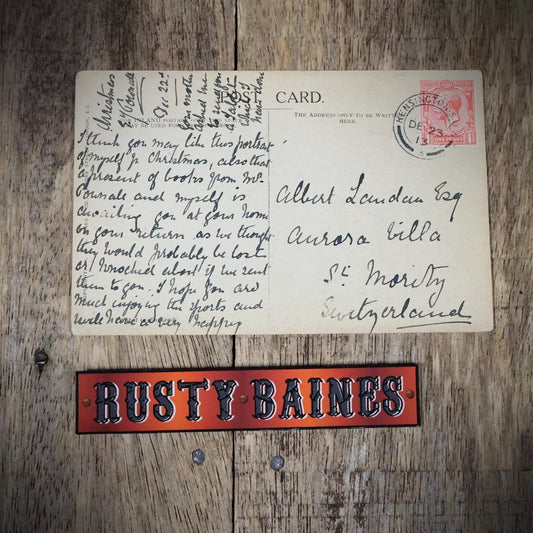 POST CARD.
THE ADDRESS ONLY TO BE WRITTEN HERE.
I think you may like this portrait
of myself for Christmas, also that
a present of books from Mr
Pownale and myself is
awaiting you at your home
on your return, as we thought
they would probably be lost
or knocked about if we sent
them to you. I hope you are
much enjoying the sports and
will have a very happy
Christmas
Dec. 22nd
Your mother
asked me
to send you
Albert Landau Esq
Aurora Villa
St. Moritz
Switzerland
KENSINGTON
DE 23
ONE PENNY
RUSTY BAINES